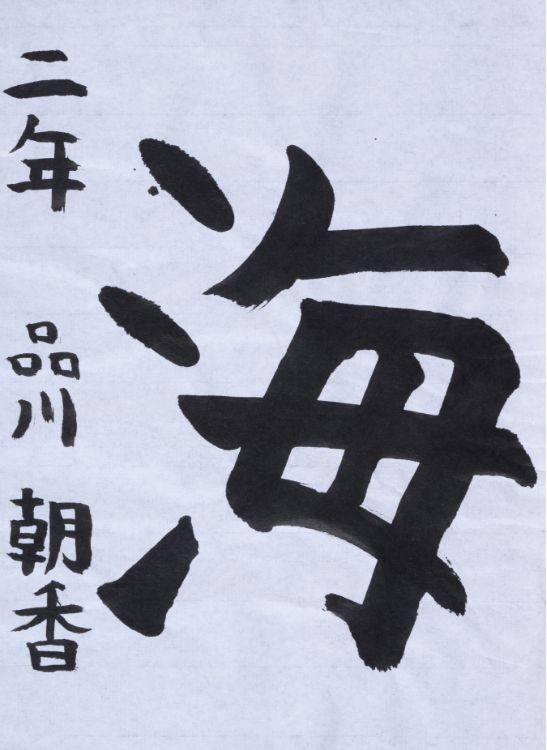 海
二年 品川 朝香